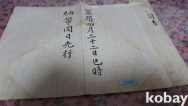 奠鴈四月二十二日巳時
納幣同日先行
kobay